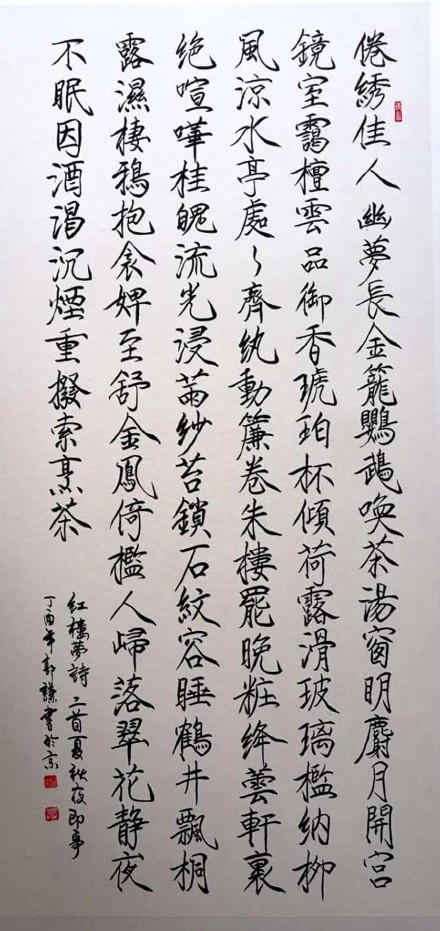 倦綉佳人幽夢長金籠鸚鵡喚茶湯窗明麝月開宮
鏡室靄檀雲品御香琥珀杯傾荷露滑玻璃檻納柳
風涼水亭處々齊紈動簾卷朱樓罷晚粧絳蕓軒裏
绝喧嘩桂魄流光浸茜紗苔鎖石紋容睡鶴井飄桐
露濕棲鴉抱衾婢至舒金鳳倚檻人歸落翠花静夜
不眠因酒渴沉煙重撥索烹茶
红樓夢詩 二首夏秋夜即事
丁酉年郭謙書於京